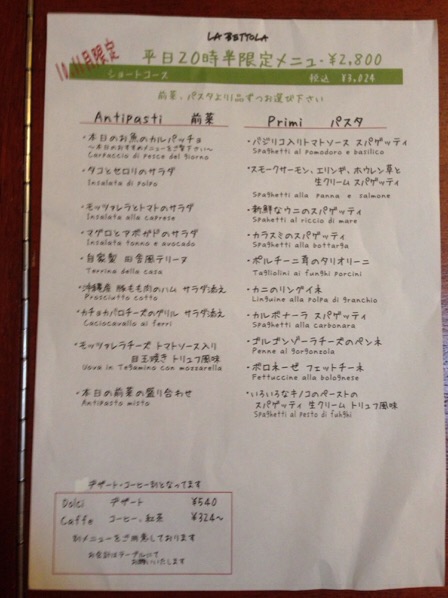 LA BETTOLA
10,11月限定
平日20時半限定メニュー・¥2,800
ショートコース
税込 ¥3,024
前菜、パスタより1品ずつお選び下さい
Antipasti 前菜
・本日のお魚のカルパッチョ
～本日のおすすめメニューをご覧下さい～
Carpaccio di pesce del giorno
・タコとセロリのサラダ
Insalata di polpo
・モッツァレラとトマトのサラダ
Insalata alla caprese
・マグロとアボガドのサラダ
Insalata tonno e avocado
・自家製 田舎風テリーヌ
Terrina della casa
・沖縄産 豚もも肉のハム サラダ添え
Prosciutto cotto
・カチョカバロチーズのグリル サラダ添え
Caciocavallo ai ferri
・モッツァレラチーズ トマトソース入り
目玉焼き トリュフ風味
Uova in Tegamino con mozzarella
・本日の前菜の盛り合わせ
Antipasto misto
Primi パスタ
・バジリコ入りトマトソース スパゲッティ
Spaghetti al pomodoro e basilico
・スモークサーモン、エリンギ、ホウレン草と
生クリーム スパゲッティ
Spaghetti alla panna e salmone
・新鮮なウニのスパゲッティ
Spaghetti al riccio di mare
・カラスミのスパゲッティ
Spaghetti alla bottarga
・ポルチーニ茸のタリオリーニ
Tagliolini ai funghi porcini
・カニのリングイネ
Linguine alla polpa di granchio
・カルボナーラ スパゲッティ
Spaghetti alla carbonara
・ゴルゴンゾーラチーズのペンネ
Penne al gorgonzola
・ボロネーゼ フェットチーネ
Fettuccine alla bolognese
・いろいろなキノコのペーストの
スパゲッティ 生クリーム トリュフ風味
Spaghetti al pesto di funghi
デザート・コーヒー別となってます
Dolci デザート ¥540
Caffe コーヒー、紅茶 ¥324～
別メニューをご用意しております
お会計はテーブルにて
お願いいたします